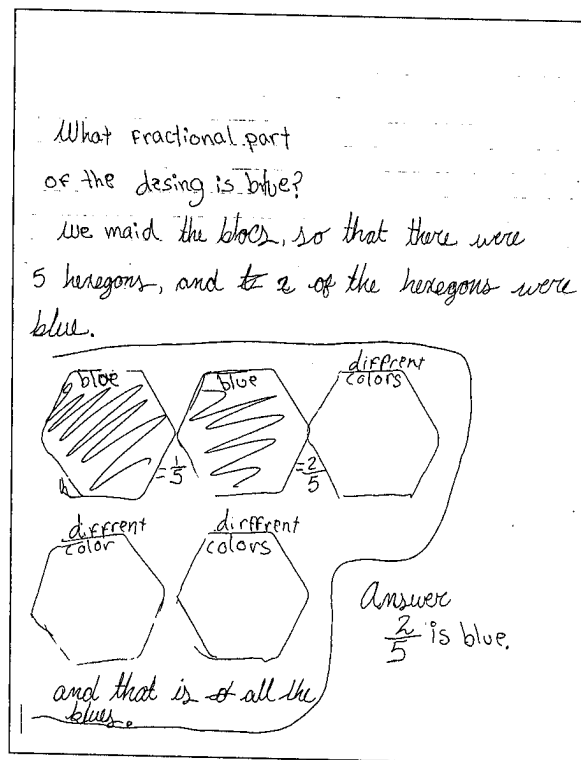 What fractional part
of the desing is blue?
we maid the blocs, so that there were
5 hexegons, and 2 of the hexegons were
blue.
blue blue diffrent
colors
= 1/5 = 2/5
diffrent
color
dirffrent
colors
Answer
2/5 is blue.
and that is all the
blues.